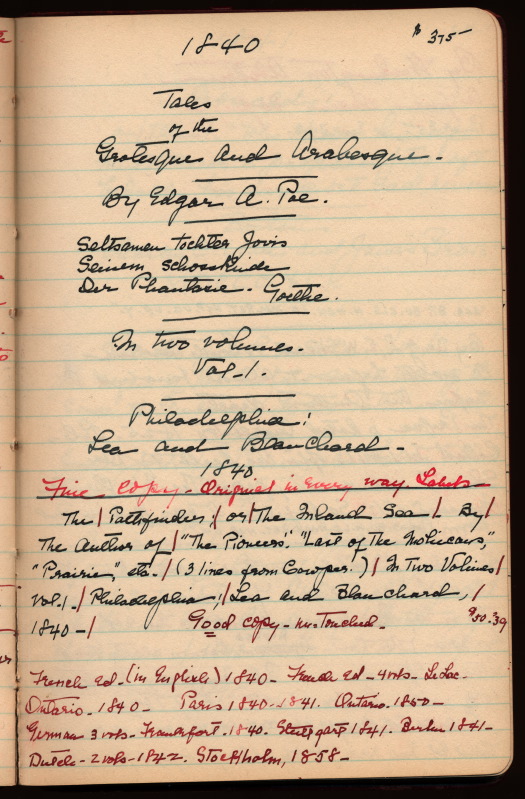 1840
$375-
Tales
of the
Grotesque and Arabesque.
By Edgar A. Poe.
Seltsamen tochter Jovis
Seinem schosskinde
Der Phantasie. Goethe.
In two volumes.
Vol. 1.
Philadelphia:
Lea and Blanchard -
1840
Fine copy - Original in every way. Labels -
The | Pathfinder; | or | The Inland Sea |. By |
The author of | "The Pioneers", "Last of the Mohicans,"
"Prairie", etc. | (3 lines from Cowper.) | In Two Volumes |
Vol. 1. | Philadelphia; | Lea and Blanchard, |
1840 - | Good copy - untouched.
French ed. (in English) 1840 - French ed - 4 vols - Le Lac-
Ontario - 1840 - Paris 1840-1841. Ontario. 1850 -
German 3 vols - Frankfort - 1840. Stuttgart 1841. Berlin 1841 -
Dutch - 2 vols - 1842. Stockholm, 1858 -